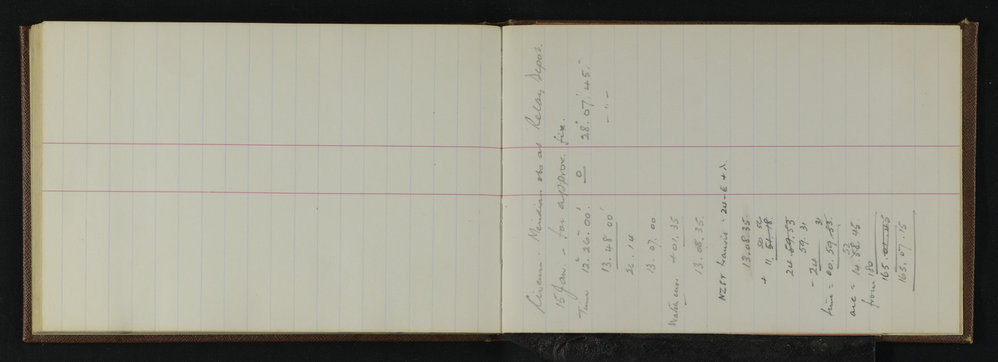 Circum. Meridian obs at Relay Depot.
15 Jan. - for approx. fix.
Time 12. 26. 00. 0 28° 07' 45"
13. 48 00 - " -
26. 14
13. 07 00
Watch error + 01. 35
13. 08. 35.
NZST transit = 24 - E + λ.
13. 08. 35
+ 11. 51. 18 50 56
24. 59. 53
59. 31
- 24
time = 00. 59. 53. 31
arc = 14. 58. 45. 52
from 180
165. 01. 15
165. 07. 15